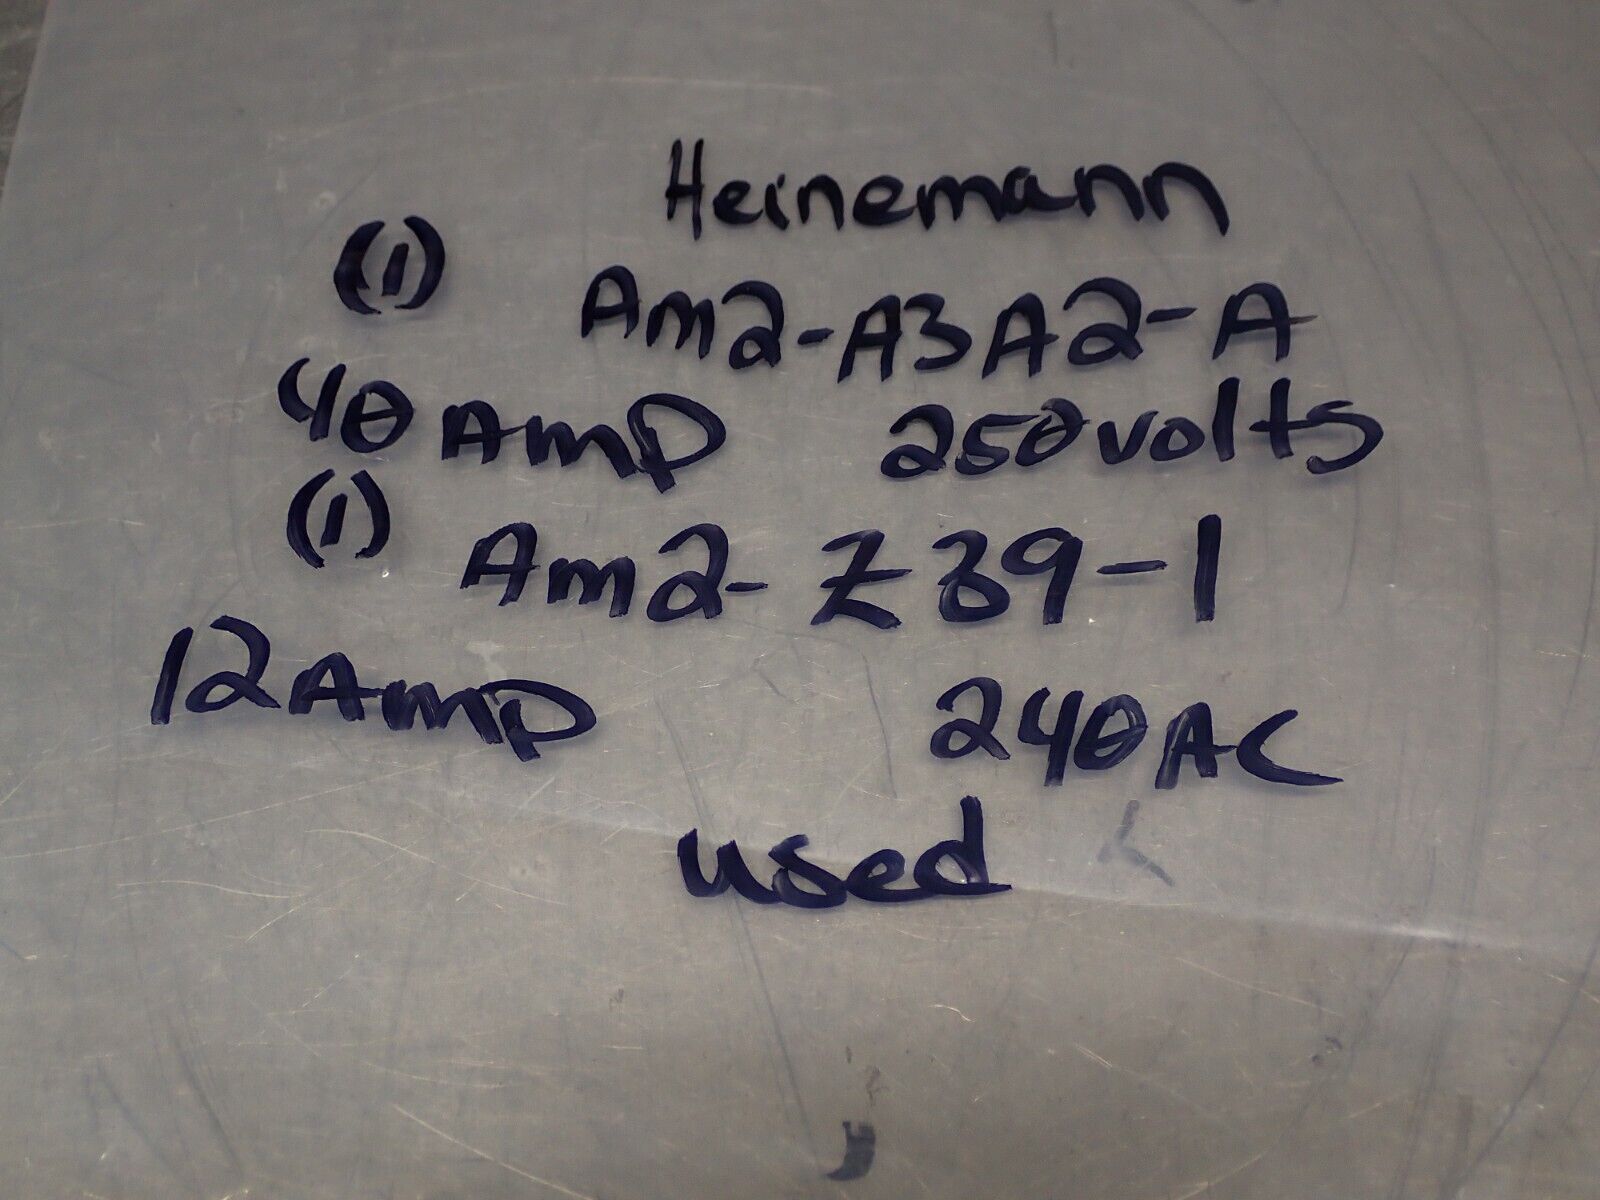 Heinemann
(1) Am2-A3A2-A
40 Amp 250 volts
(1) Am2-Z39-1
12 Amp 240 AC
used